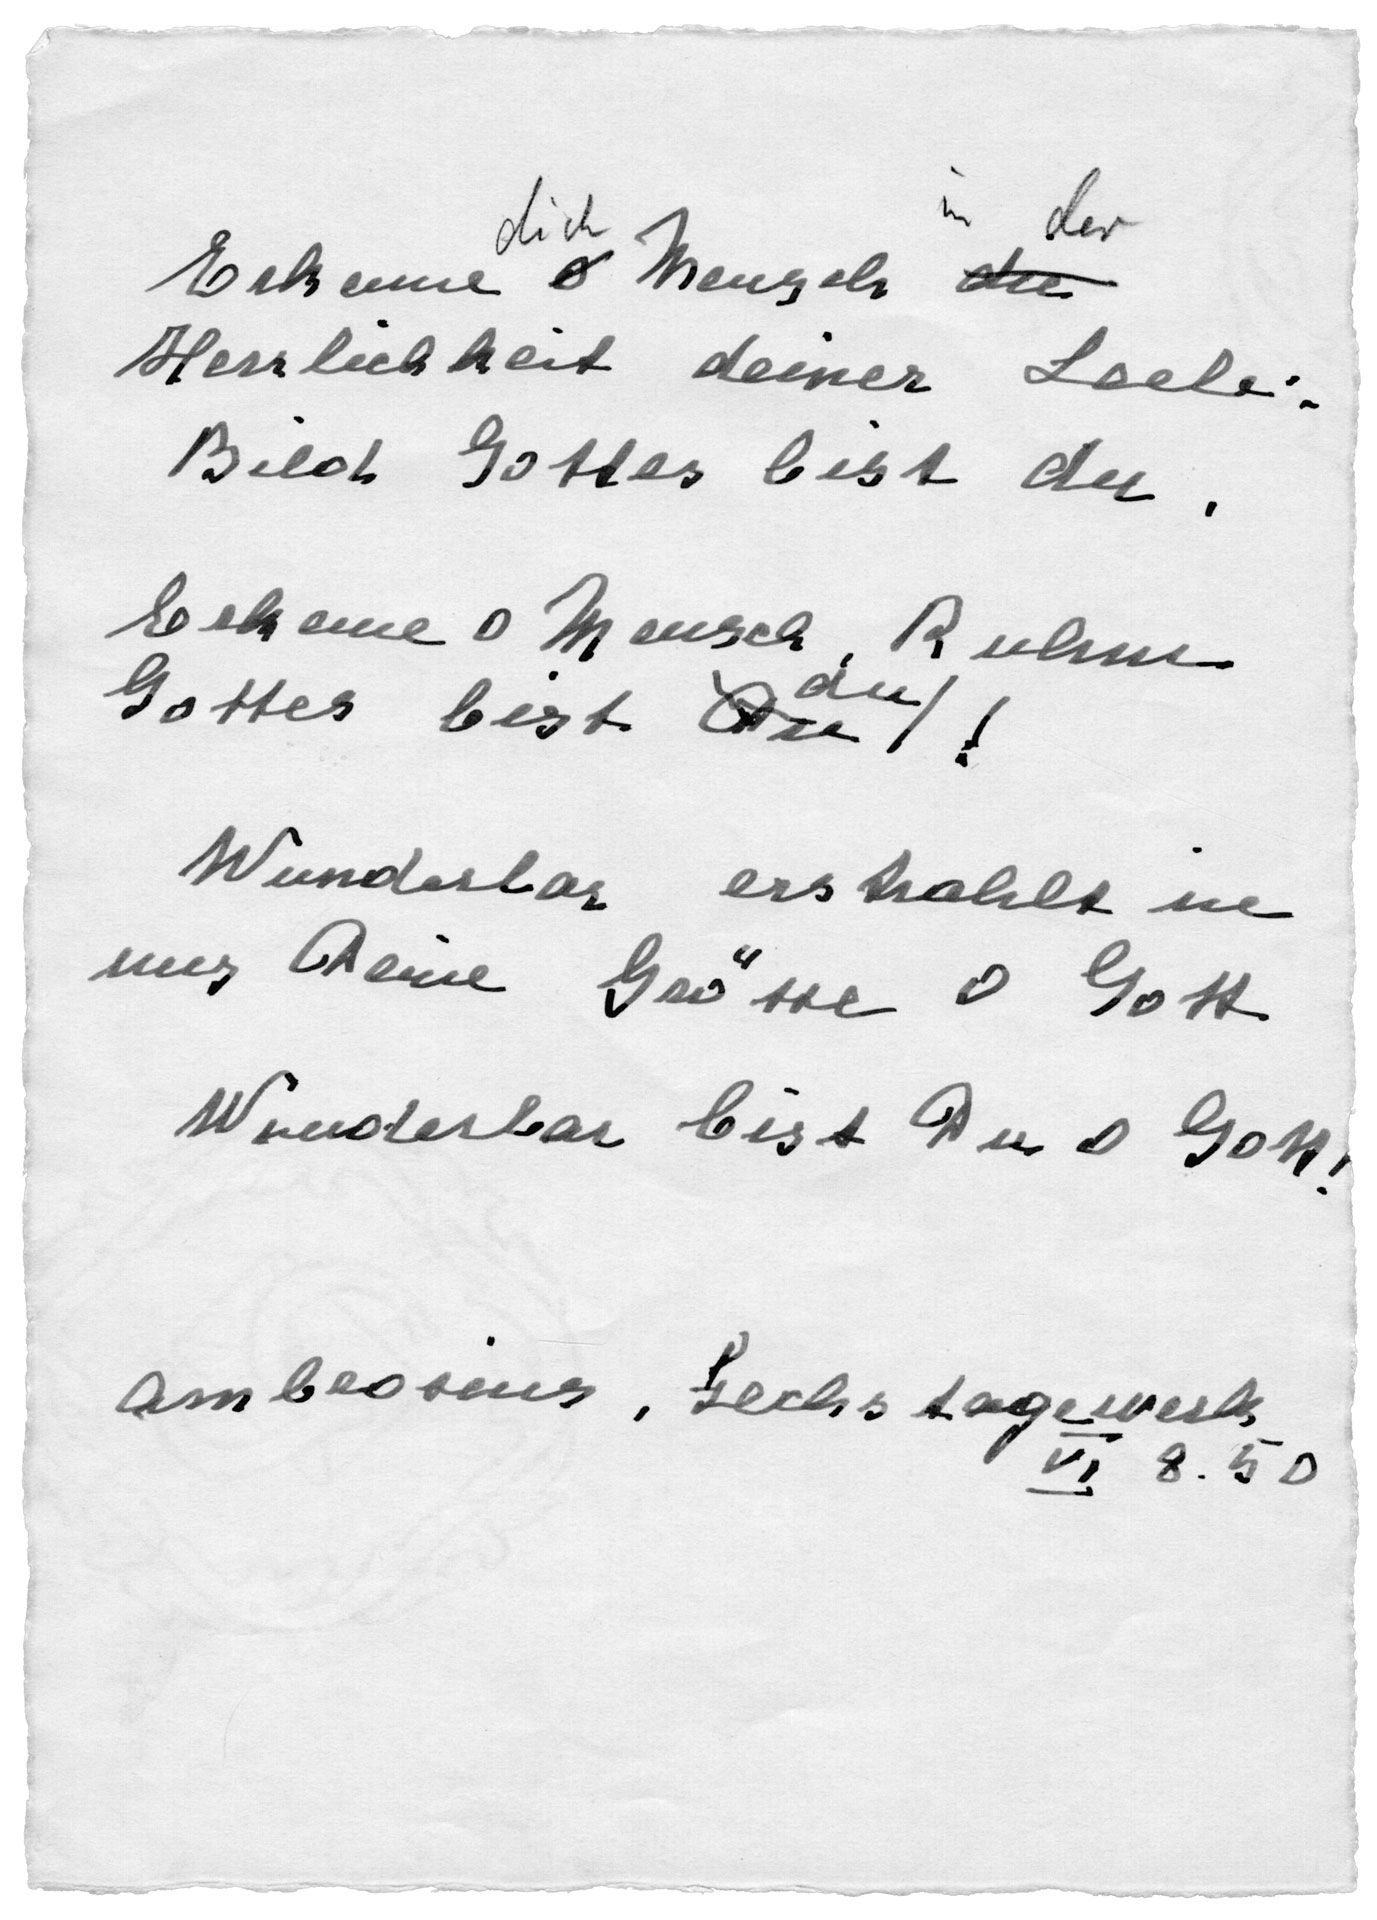 dich in der
Erkenne o Mensch die
Herrlichkeit deiner Seele:
Bild Gottes bist du.
Erkenne o Mensch, Ruhm
du
Gottes bist Du!!
Wunderbar erstrahlt in
uns Deine Grösse o Gott
Wunderbar bist Du o Gott!
Ambrosius, Sechstagewerk
VI 8.50